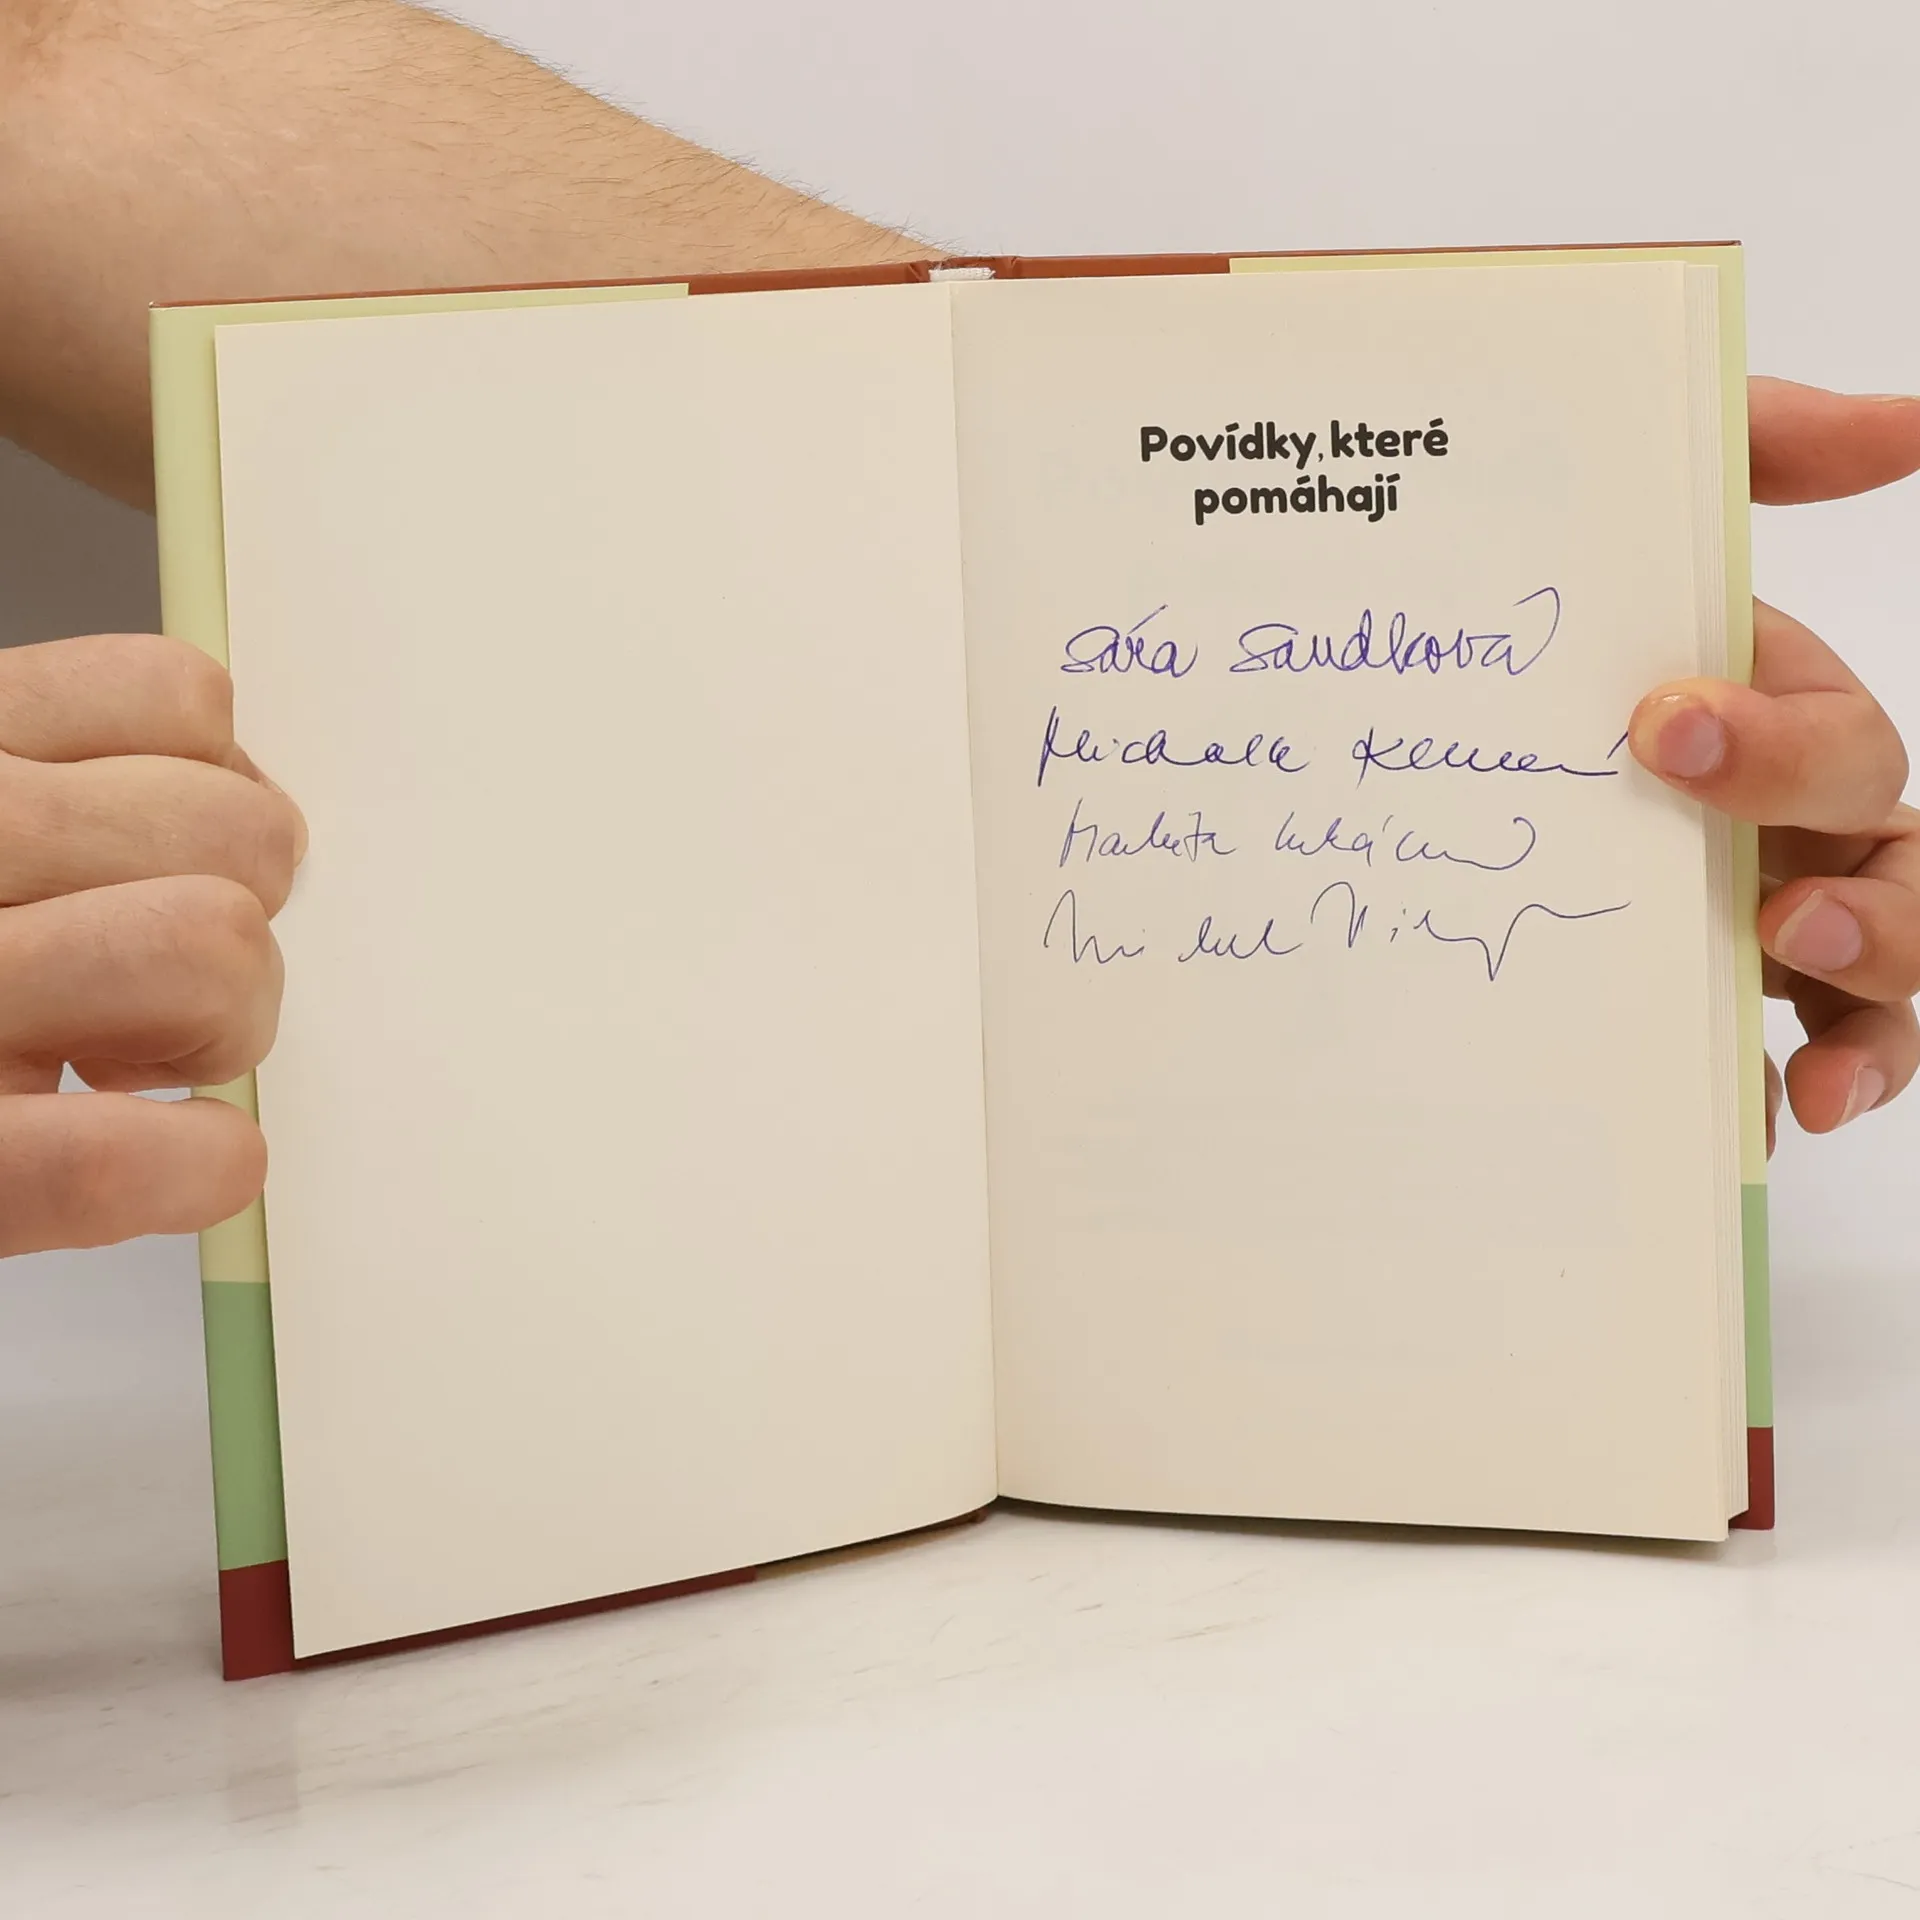 Povídky, které
pomáhají
Sára Sandková
Michaela Klevisová
Markéta Lukášková
Michal Viewegh